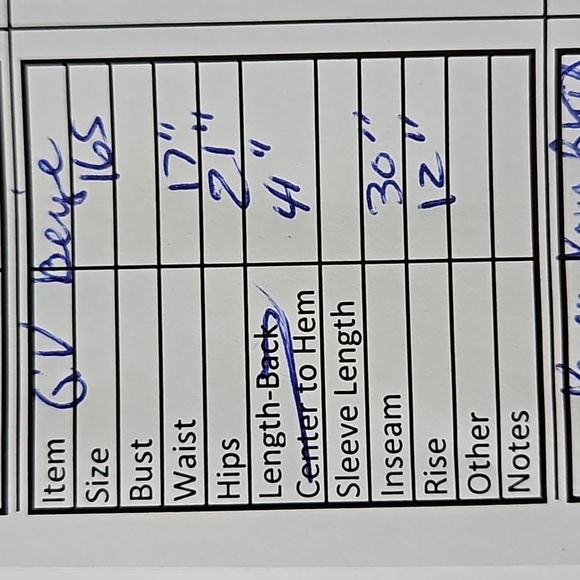 Item GV Beige
Size 16S
Bust
Waist 17"
Hips 21"
Length-Back 41"
Center to Hem
Sleeve Length
Inseam 30"
Rise 12"
Other
Notes